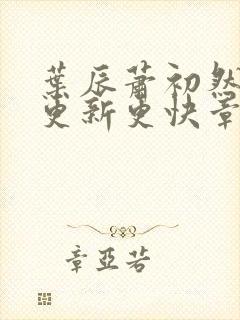 葉辰蕭初然
更新更快章
章亞若